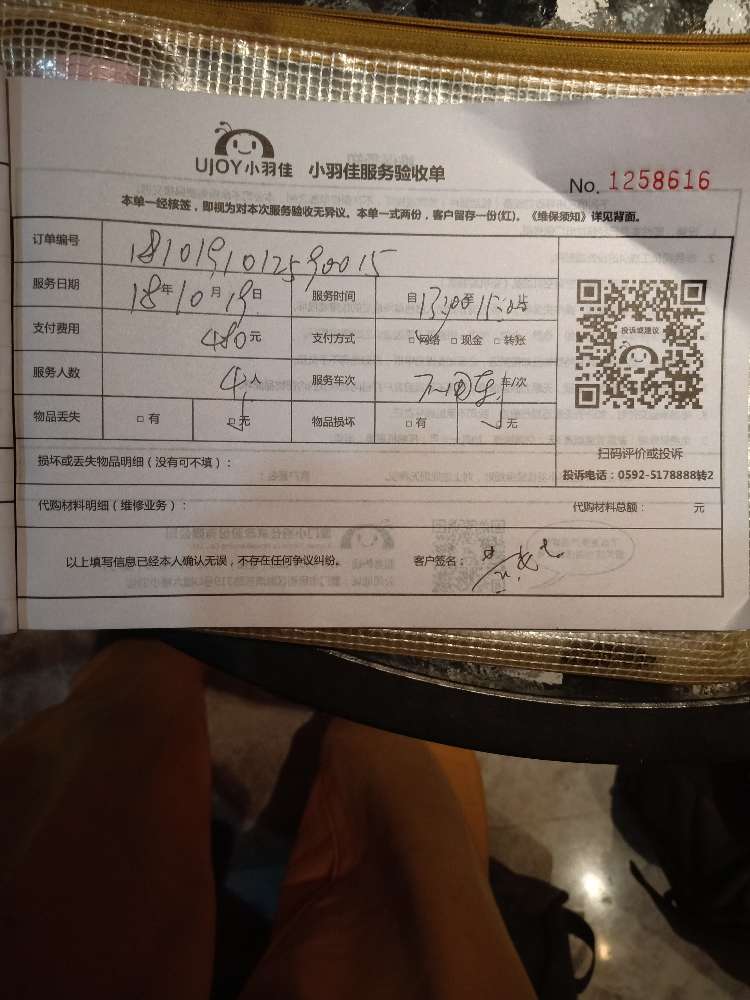 UJOY小羽佳 小羽佳服务验收单
No. 1258616
本单一经核签，即视为对本次服务验收无异议。本单一式两份，客户留存一份(红)。《维保须知》详见背面。
订单编号 1810191012590015
服务日期 18年10月19日 服务时间 自13:00至15:00时
支付费用 480元 支付方式 □网络 □现金 □转账
服务人数 4人 服务车次 车/次
物品丢失 □有 □无 物品损坏 □有 □无
投诉或建议
扫码评价或投诉
投诉电话：0592-5178888转2
损坏或丢失物品明细（没有可不填）：
代购材料明细（维修业务）： 代购材料总额： 元
以上填写信息已经本人确认无误，不存在任何争议纠纷。 客户签名：